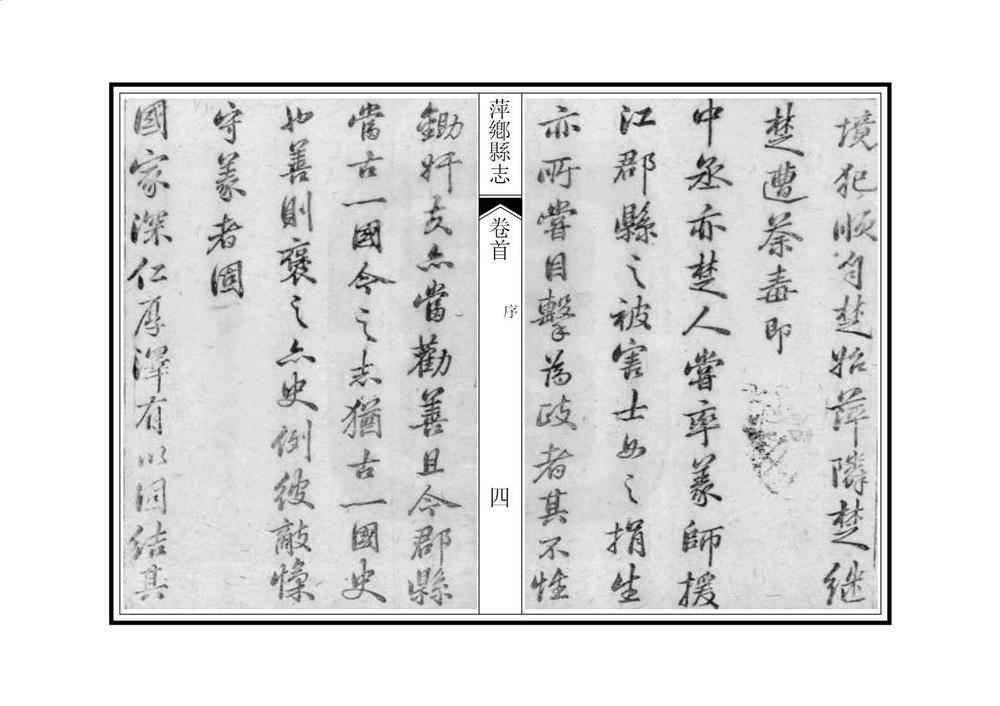 境犯順自楚始萍隣楚継
楚遭荼毒即
中丞亦楚人嘗率義師援
江郡縣之被害士女之捐生
亦所嘗目擊為政者其不惟
萍鄉縣志
卷首
序
四
鋤奸支亦當勸善且今郡縣
當古一國今之志猶古一國史
也善則褒之亦史例彼敵愾
守義者固
國家深仁厚澤有以固結其